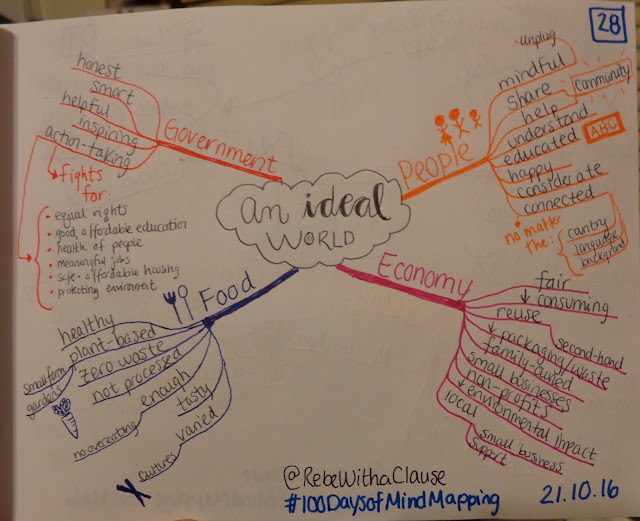 28
an ideal
WORLD
Government
honest
smart
helpful
inspiring
action-taking
fights
for:
equal rights
good, affordable education
health of people
meaningful jobs
safe + affordable housing
protecting environment
People
unplug
mindful
share
community
help
understand
educated
ABC
happy
considerate
connected
no matter
the:
cantry
language
background
Food
healthy
plant-based
small farm
gardens
zero waste
not processed
enough
no overeating
tasty
varied
cultures
Economy
fair
↓ consuming
reuse
second-hand
↓ packaging/waste
family-owned
small businesses
non-profits
↓ environmental impact
local
small business
support
@RebeWithaClause
#100DaysofMindMapping
21.10.16